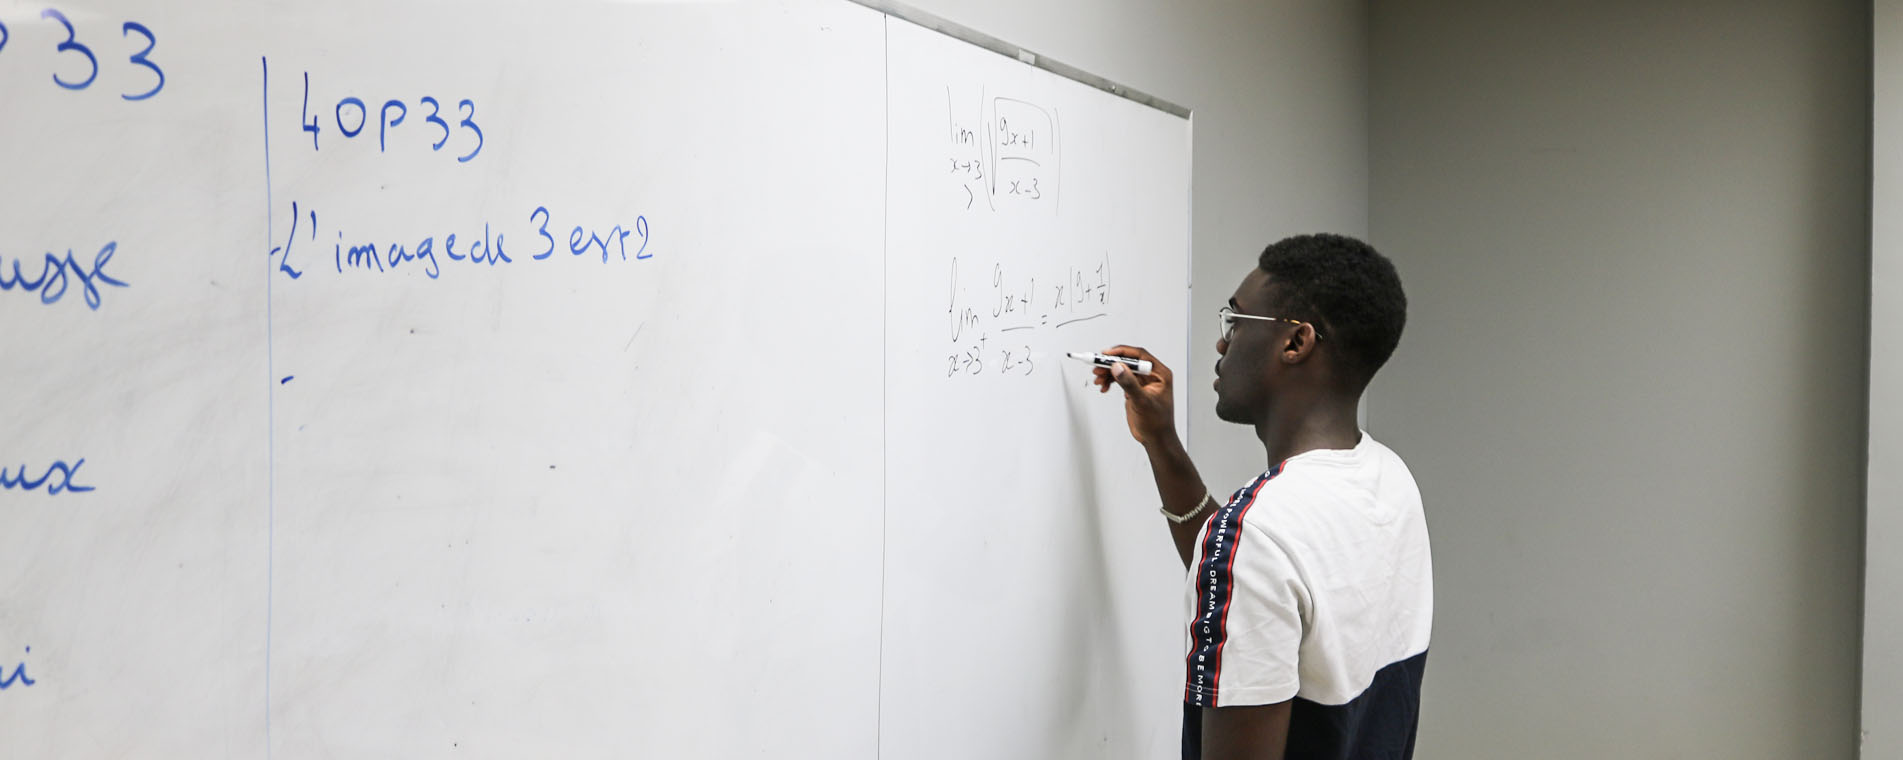 33
usse
ux
i
40P33
-L'image de 3 est 2
-
lim x→3 > (√(9x+1 / x-3))
lim x→3⁺ 9x+1 / x-3 = x(9+1/x)
POWERFUL. DREAM BIG TO BE MORE